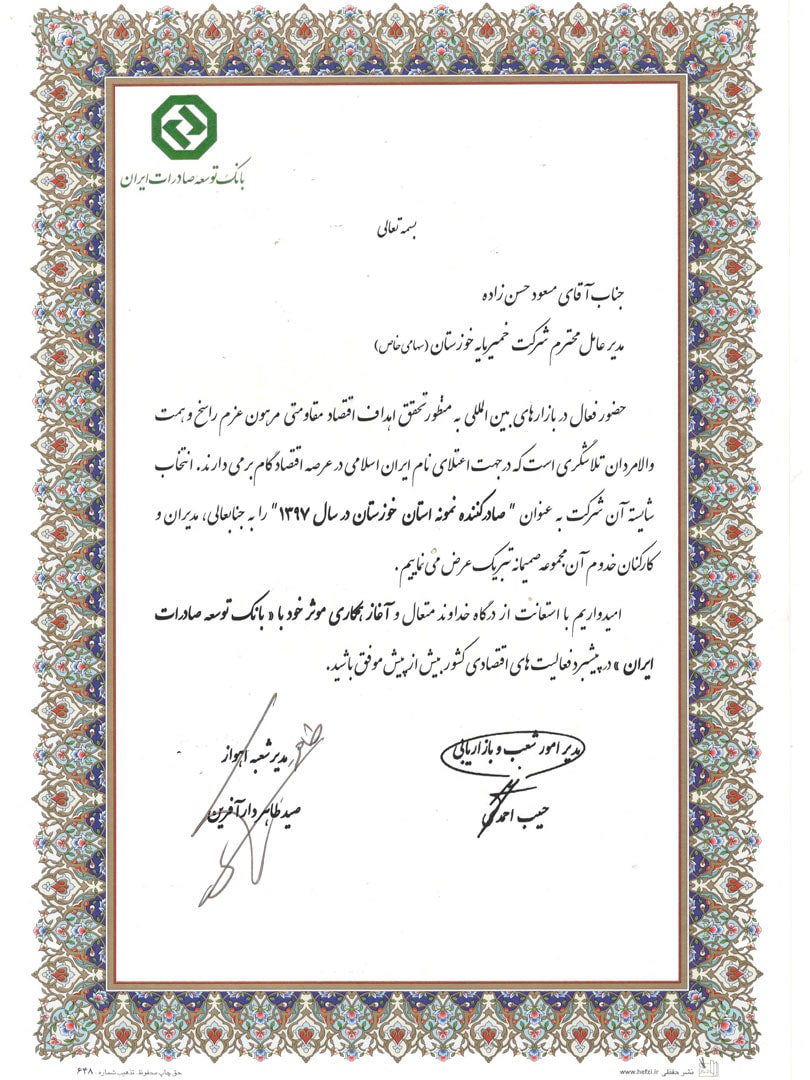 بانک توسعه صادرات ایران
بسمه تعالی
جناب آقای مسعود حسن زاده
مدیر عامل محترم شرکت خمیرمایه خوزستان (سهامی خاص)
حضور فعال در بازارهای بین المللی به منظور تحقق اهداف اقتصاد مقاومتی مرهون عزم راسخ و همت
والامردان تلاشگری است که در جهت اعتلای نام ایران اسلامی در عرصه اقتصاد گام برمی دارند. انتخاب
شایسته آن شرکت به عنوان "صادرکننده نمونه استان خوزستان در سال ۱۳۹۷" را به جنابعالی، مدیران و
کارکنان خدوم آن مجموعه صمیمانه تبریک عرض می نماییم.
امیدواریم با استعانت از درگاه خداوند متعال و آغاز همکاری موثر خود با « بانک توسعه صادرات
ایران » در پیشبرد فعالیت های اقتصادی کشور بیش از پیش موفق باشید.
مدیر امور شعب و بازاریابی
مدیر شعبه اهواز
حبیب احمدی
صید طاهر دارآفرین
نشر حفظی www.hefzi.ir
حق چاپ محفوظ. تذهیب شماره: ۶۴۸